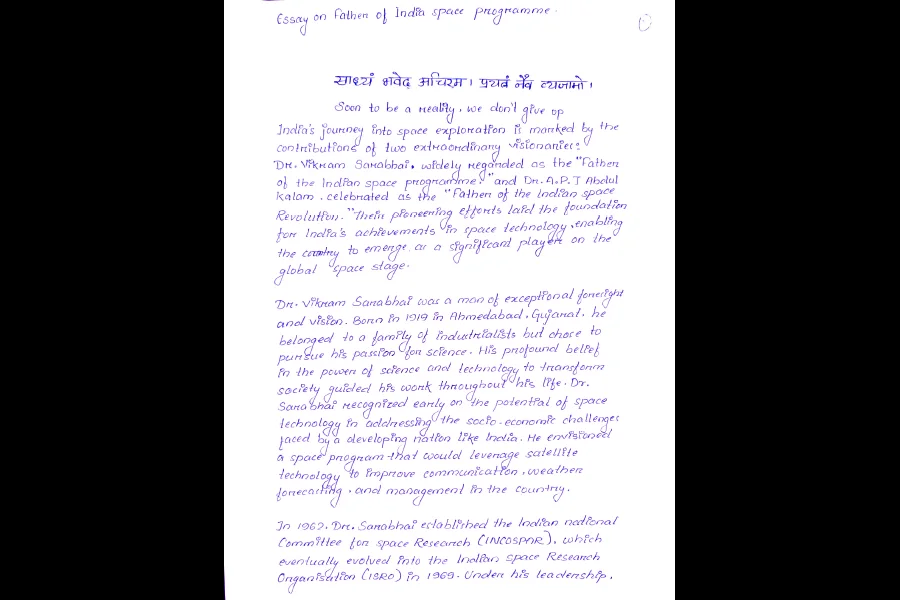 Essay on Father of India space programme.
साध्यं भवेद् अचिरम। प्रयत्नं नैव त्यजामो।
Soon to be a reality, we don't give up
India's journey into space exploration is marked by the
contributions of two extraordinary visionaries:
Dr. Vikram Sarabhai, widely regarded as the "Father
of the Indian space programme." and Dr. A.P.J Abdul
Kalam, celebrated as the "Father of the Indian space
Revolution." Their pioneering efforts laid the foundation
for India's achievements in space technology, enabling
the country to emerge as a significant player on the
global space stage.
Dr. Vikram Sarabhai was a man of exceptional foresight
and vision. Born in 1919 in Ahmedabad, Gujarat, he
belonged to a family of industrialists but chose to
pursue his passion for science. His profound belief
in the power of science and technology to transform
society guided his work throughout his life. Dr.
Sarabhai recognized early on the potential of space
technology in addressing the socio-economic challenges
faced by a developing nation like India. He envisioned
a space program that would leverage satellite
technology to improve communication, weather
forecasting, and management in the country.
In 1962, Dr. Sarabhai established the Indian national
Committee for space Research (INCOSPAR), which
eventually evolved into the Indian space Research
Organisation (ISRO) in 1969. Under his leadership,